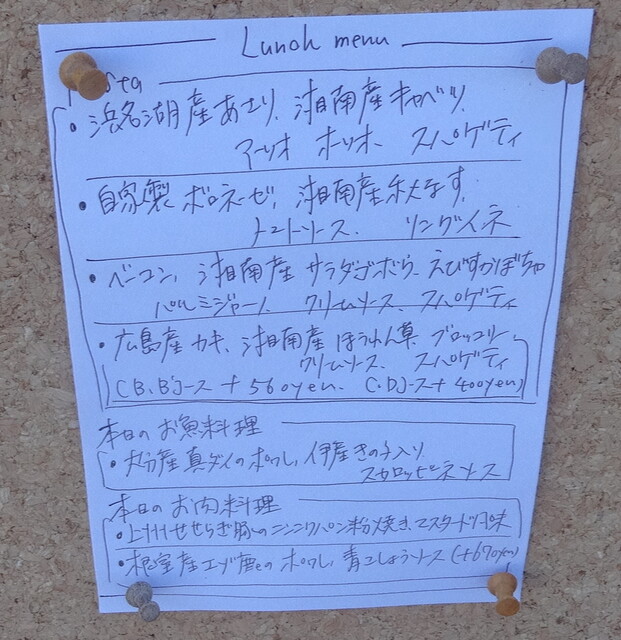 Lunch menu
sta
・浜名湖産あさり、湘南産キャベツ、
アーリオ オーリオ スパゲティ
・自家製 ボロネーゼ、湘南産秋なす、
トマトソース、 リングイネ
・ベーコン、湘南産 サラダゴボウ、えびすかぼちゃ
パルミジャーノ クリームソース、スパゲティ
・広島産 カキ、湘南産 ほうれん草、ブロッコリー、
クリームソース、 スパゲティ
(B.B'コース + 560yen、C.D)コース+ 400yen)
本日の お魚料理
・大分産 真ダイのポワレ、伊産きのこ入り
スカロッピーネソース
本日の お肉料理
・上州せせらぎ豚のニンニクパン粉焼き、マスタード風味
・根室産エゾ鹿のポワレ、青こしょうソース(+670yen)